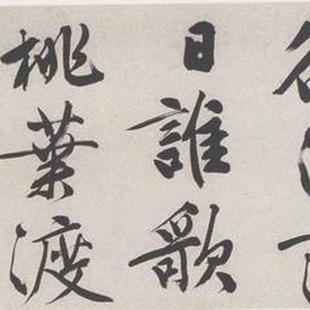 日誰歌
桃葉渡